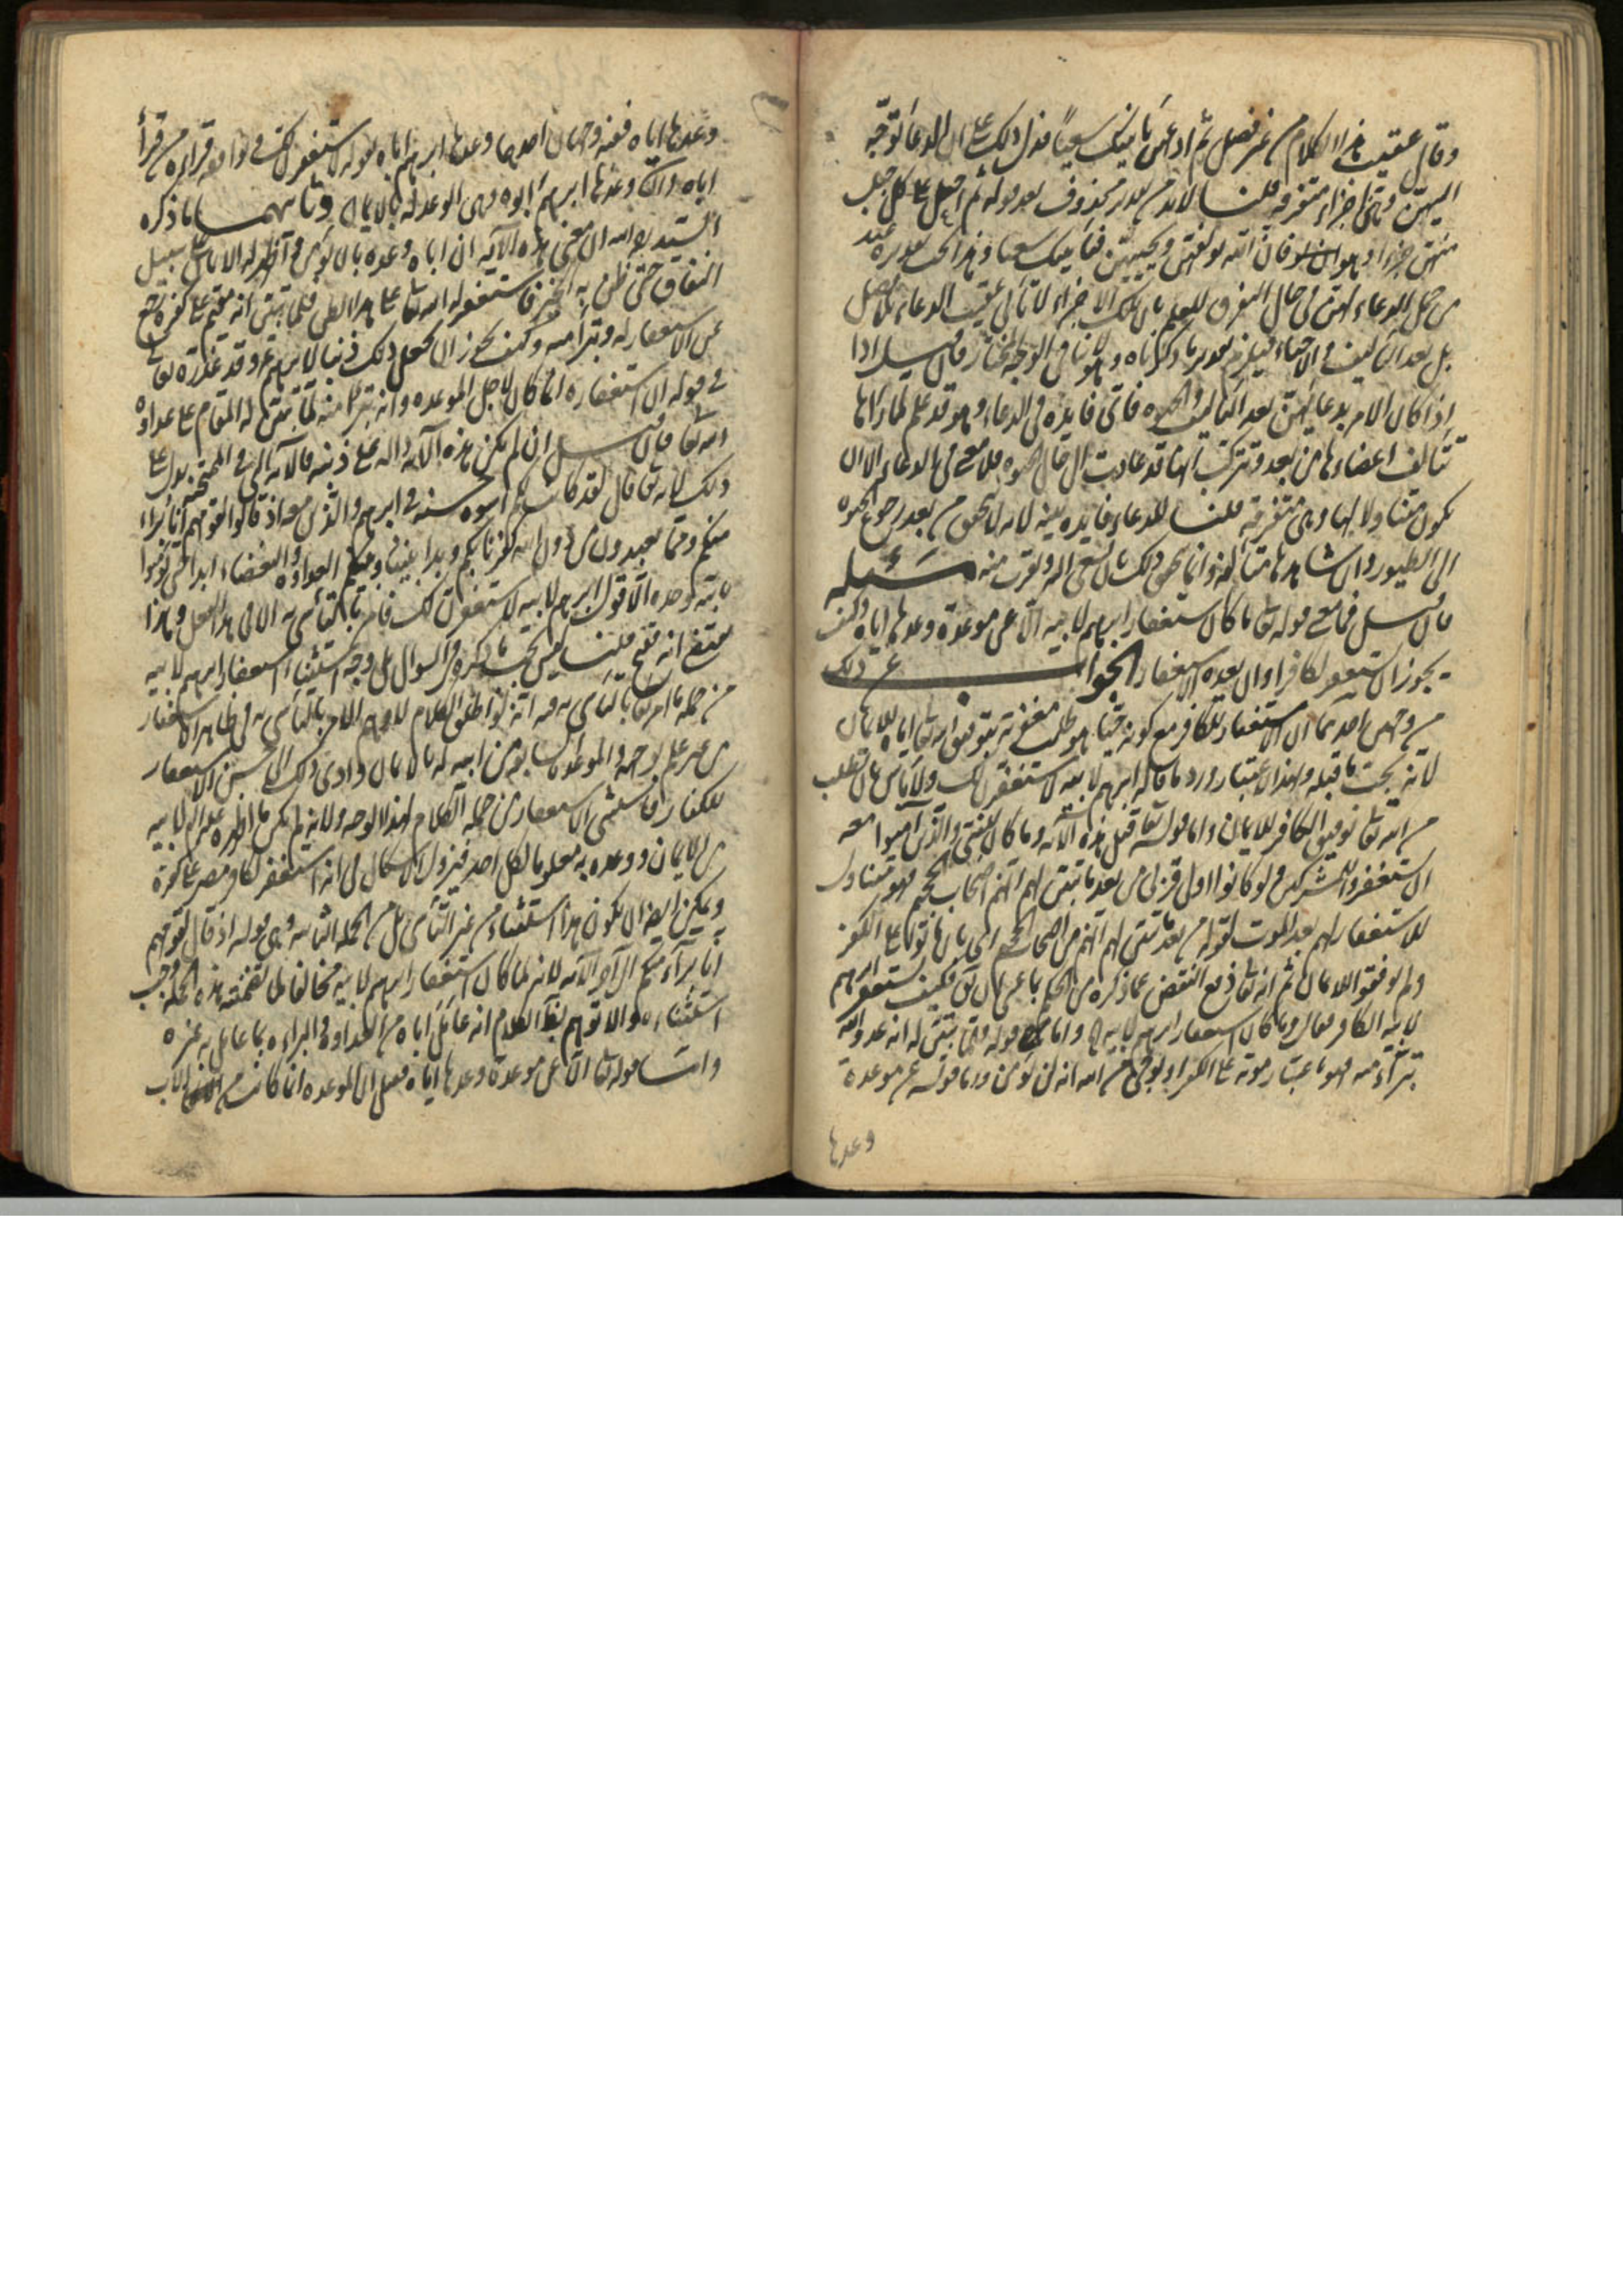 وقال عقيب هذا الكلام من غير فصل ثم ادعهن ياتينك سعيا فدل ذلك على ان الدعاء توجه
اليهن وهن اجزاء متفرقة قلنا لا بد من تقدير محذوف بعد قوله ثم اجعل على كل جبل
منهن جزءا وهو فان الله يؤلفهن ويحييهن فياتينك سعيا
من حمل الدعاء لهن في حال التفرق للعلم بان تلك الاجزاء لا تأتي عقيب الدعاء بلا فصل
بل بعد التاليف والاحياء فيلزم تقدير ما ذكرناه وهو الوجه المختار فان قيل اذا
اذا كان الامر بدعائهن بعد التاليف والحيوة فاي فايدة في الدعاء وهو قد علم لما رآها
تتالف اعضاءها من بعد وتتركب انها قد عادت الى حال الحيوة فلا معنى في الدعاء الا ان
يكون متناولا لها وهي متفرقة قلنا للدعاء فايدة بينة لانه لا يتحقق من بعد رجوع الحيوة
الى الطيور وان شاهدها متألفة وانما يتحقق ذلك بان تسعى اليه وتقرب منه مسئلة
فان قيل فما معنى قوله تعالى وما كان استغفار ابرهيم لابيه الا عن موعدة وعدها اياه وكيف
يجوز ان يستغفر لكافر او ان يعده بالاستغفار الجواب عن ذلك
من وجهين احدهما ان الاستغفار للكافر مع كونه حيا هو طلب مغفرته بتوفيق الله تعالى اياه للايمان
لانه يجب ما قبله وبهذا الاعتبار ورد ما قاله ابرهيم لابيه لاستغفرن لك ولا باس بان تطلب
من الله تعالى توفيق الكافر للايمان واما قوله تعالى قبل هذه الآية وما كان للنبي والذين آمنوا معه
ان يستغفروا للمشركين ولو كانوا اولي قربى من بعد ما تبين لهم انهم اصحاب الجحيم فهو متناول
للاستغفار لهم بعد الموت لقوله من بعد ما تبين لهم انهم من اصحاب الجحيم اي بان ماتوا على الكفر
ولم يوفقوا للايمان ثم انه تعالى دفع النقض عما ذكره من الحكم بما عسى ان يق فكيف يستغفر ابرهيم
لابيه الكافر فقال وما كان استغفار ابرهيم لابيه واما قوله فلما تبين له انه عدو لله
تبرأ منه فهو باعتبار موته على الكفر او يوحى من الله انه لن يؤمن واما قوله عن موعدة
وعدها
وعدها اياه ففيه وجهان احدهما وعدها ابرهيم اباه بقوله لاستغفرن لك قراءة من قرأ
اباه والثاني وعدها ابرهيم ابوه وهي الوعد له بالايمان وثانيهما ما ذكره
السيد ره الله ان معنى هذه الآية ان اباه وعده بان يؤمن واظهر له الايمان على سبيل
النفاق حتى ظن به الخير فاستغفر له الله تعالى على هذا الظن فلما تبين انه مقيم على كفره رجع
عن الاستغفار له وتبرأ منه وكيف يجوز ان يجعل ذلك ذنبا لابرهيم ع وقد عذره تعالى
في قوله ان استغفاره انما كان لاجل الموعدة وانه تبرأ منه لما تبين له المقام على عداوة
الله تعالى فان قيل ان لم تكن هذه الآية دالة على ذنبه فالآية التي في الممتحنة تدل على
ذلك لانه تعالى قال لقد كانت لكم اسوة حسنة في ابرهيم والذين معه اذ قالوا لقومهم انا برآء
منكم ومما تعبدون من دون الله كفرنا بكم وبدا بيننا وبينكم العداوة والبغضاء ابدا حتى تؤمنوا
بالله وحده الا قول ابرهيم لابيه لاستغفرن لك فامر بالتأسي به الا في هذا الفعل وهذا
يقتضي انه قبيح قلنا ليس يجب ما ذكره في السوال بل وجه استثناء استغفار ابرهيم لابيه
من جملة ما امر بالتاسي به فيه انه لو اطلق الكلام لاوهم الامر بالتاسي به في ظاهر الاستغفار
من غير علم بوجهه والموعدة السابقة من ابيه له بالايمان وادى ذلك الى حسن الاستغفار
للكفار فاستثنى الاستغفار من جملة الكلام لهذا الوجه ولانه لم يكن ما اظهره ابوه
من الايمان ووعده به معلوما لكل احد فيزول الاشكال في انه استغفر لكافر مصر على كفره
ويمكن ايضا ان يكون هذا استثناء من غير التاسي بل من الجملة الثانية وهي قوله اذ قال لقومهم
انا برآء منكم الى آخر الآية لانه لما كان استغفار ابرهيم لابيه مخالفا لما تضمنته هذه الجملة وجب
استثناؤه والا توهم بظاهر الكلام انه عامل اباه من العداوة والبراءة بما عامل به غيره
واما قوله تعالى الا عن موعدة وعدها اياه فقيل ان الموعدة انما كانت من الاب